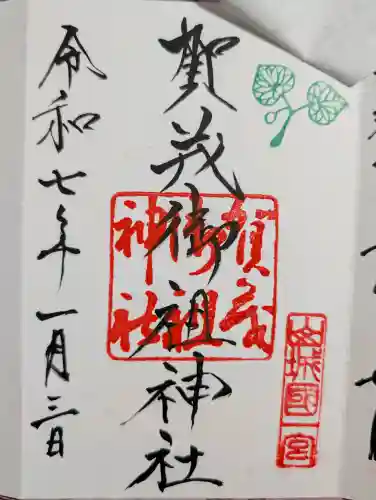 賀茂御祖神社
賀茂御祖神社
山城國一宮
令和七年一月三日